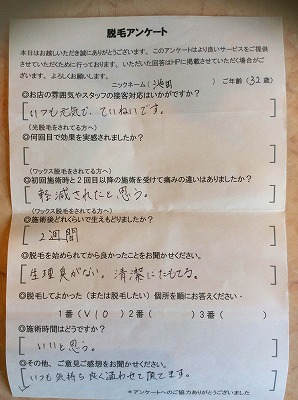 脱毛アンケート
本日はお越しいただき誠にありがとうございます。このアンケートはより良いサービスをご提供
させていただくために行っております。いただいた回答はHPに掲載させていただく場合がご
ざいます。よろしくお願いします。
ニックネーム( ) ご年齢(32歳)
◎お店の雰囲気やスタッフの接客対応はいかがですか?
いつも元気で、ていねいです。
(光脱毛をされてる方へ)
◎何回目で効果を実感されましたか?
(ワックス脱毛をされてる方へ)
◎初回施術時と2回目以降の施術を受けて痛みの違いはありましたか?
軽減されたと思う。
(ワックス脱毛をされてる方へ)
◎施術後どれくらいで生えもどりましたか?
2週間
◎脱毛を始められてから良かったことをお聞かせください。
生理臭がない。清潔にたもてる。
◎脱毛してよかった(または脱毛したい)個所を順にお答えください・
1番(VIO) 2番( ) 3番( )
◎施術時間はどうですか?
いいと思う。
◎その他、ご意見ご感想をお聞かせください。
いつも気持ち良く通わせて頂てます。
*アンケートへのご協力ありがとうございました